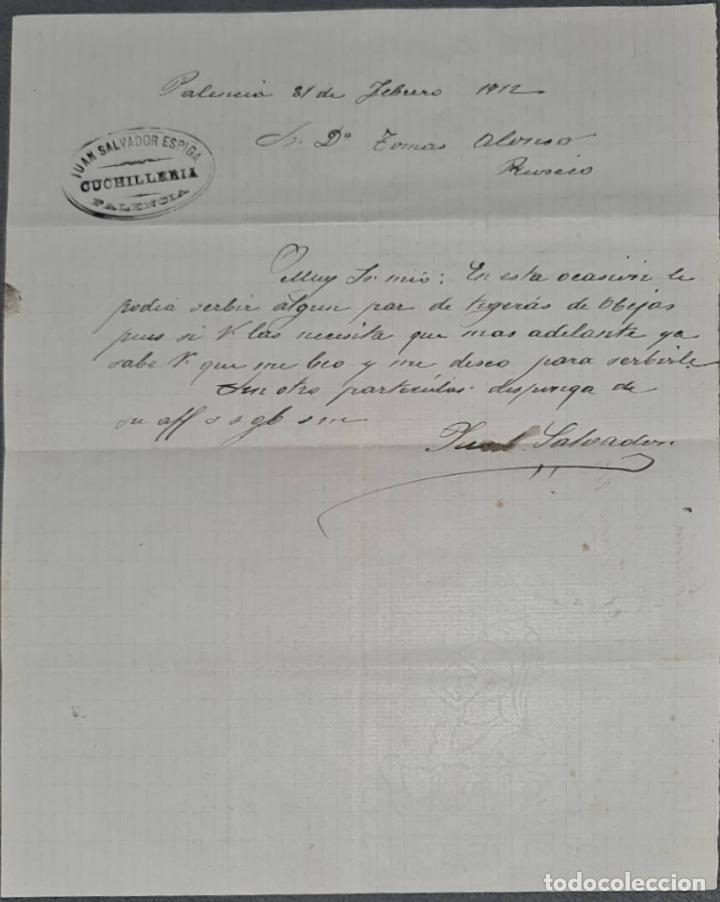 Palencia 21 de Febrero 1912
JUAN SALVADOR ESPIGA
CUCHILLERIA
PALENCIA
Sr. Dn Tomas Alonso
Rioseco
Muy Sr mio: En esta ocasion le
podia serbir algun par de tigeras de Obejas
pues si V las necesita que mas adelante ya
sabe V. que me beo y me deseo para serbirle
Sin otro particular disponga de
su aff s s q b s m
Juan Salvador
todocoleccion